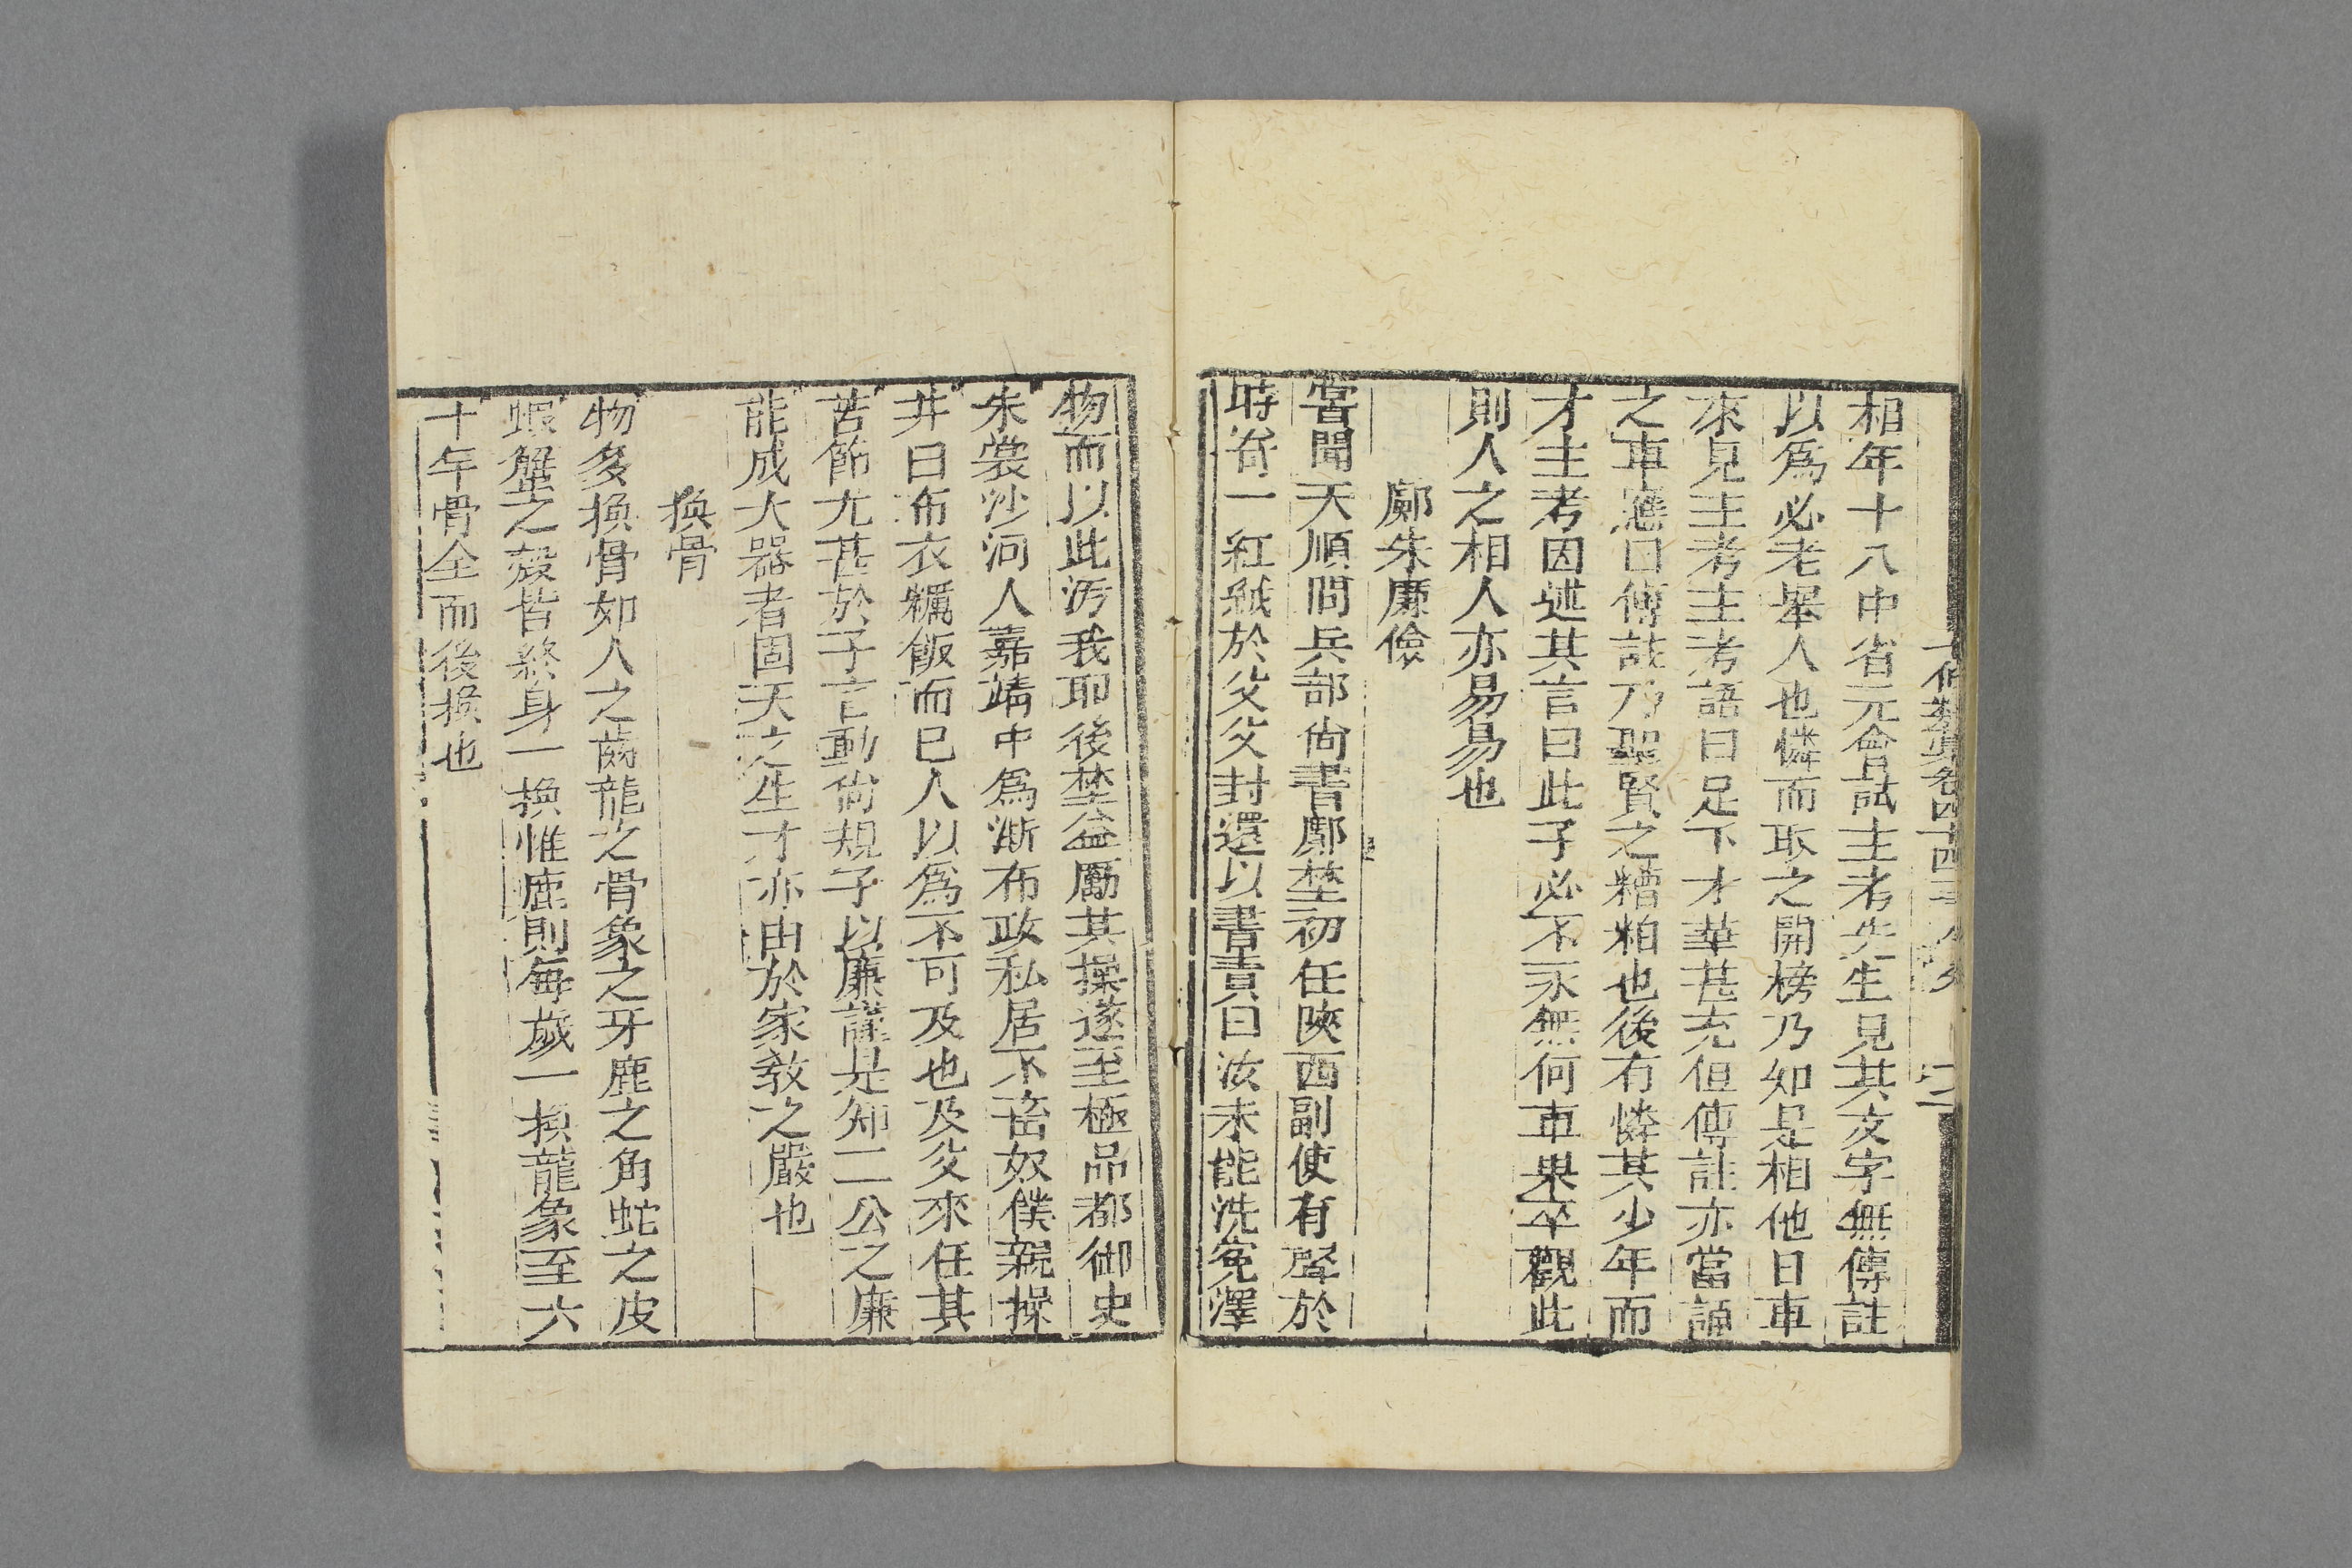 七修類藁卷四十四 事物
相年十八中省元會試主考先生見其文字無傳註
以爲必老舉人也憐而取之開榜乃如是相他日車
來見主考主考語曰足下才華甚充但傳註亦當誦
之車應曰傳註乃聖賢之糟粕也後有憐其少年而
才主考因述其言曰此子必不永無何車果卒觀此
則人之相人亦易易也
鄺朱廉儉
嘗聞天順間兵部尚書鄺埜初任陝西副使有聲於
時寄一紅絨於父父封還以書責曰汝未能洗寃澤
物而以此汚我耶後埜益厲其操遂至極品都御史
朱裳沙河人嘉靖中爲浙布政私居不畜奴僕親操
井臼布衣糲飯而已人以爲不可及也及父來任其
苦節尤甚於子言動尚規子以廉謹是知二公之廉
能成大器者固天之生才亦由於家教之嚴也
換骨
物多換骨如人之齒龍之骨象之牙鹿之角蛇之皮
蝦蟹之殼皆終身一換惟鹿則每歲一換龍象至六
十年骨全而後換也